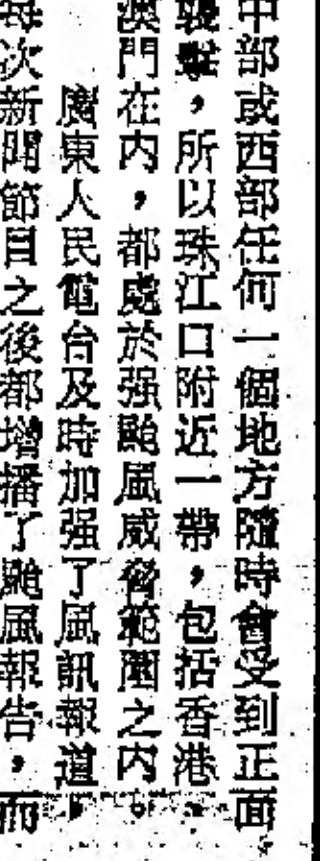 中部或西部任何一個地方隨時會受到正面
襲擊，所以珠江口附近一帶，包括香港、
澳門在内，都處於强颱風威脅範圍之内。
廣東人民電台及時加强了風訊報道，
每次新聞節目之後都增播了颱風報告，而